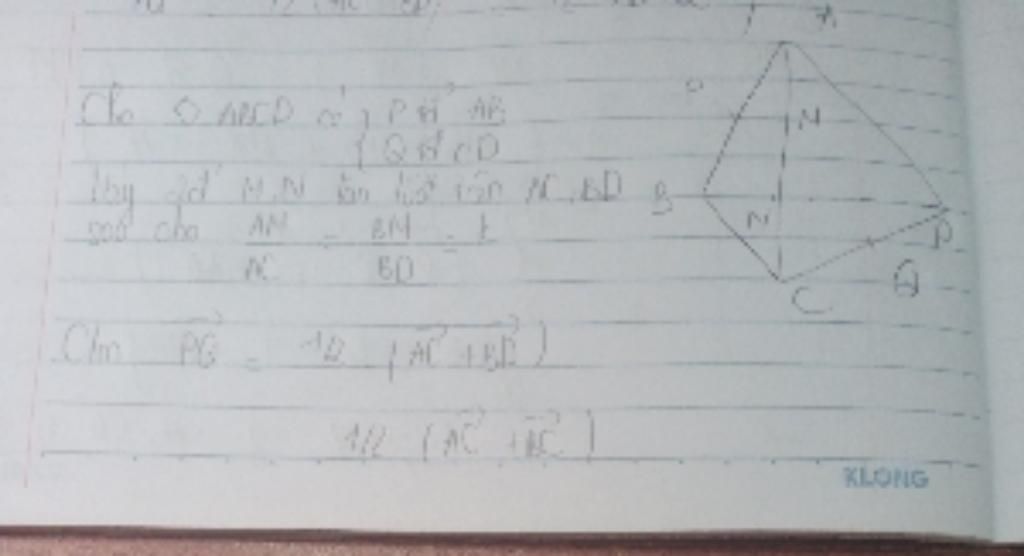 Cho ◊ ABCD có { P tđ AB
{ Q tđ CD
lấy 2đ M, N lần lượt trên AC, BD
sao cho AM/AC = BN/BD = k
Cm PQ = 1/2 (AC + BD)
1/2 (AC + BC)
A
P
M
B
N
D
Q
C
KLONG